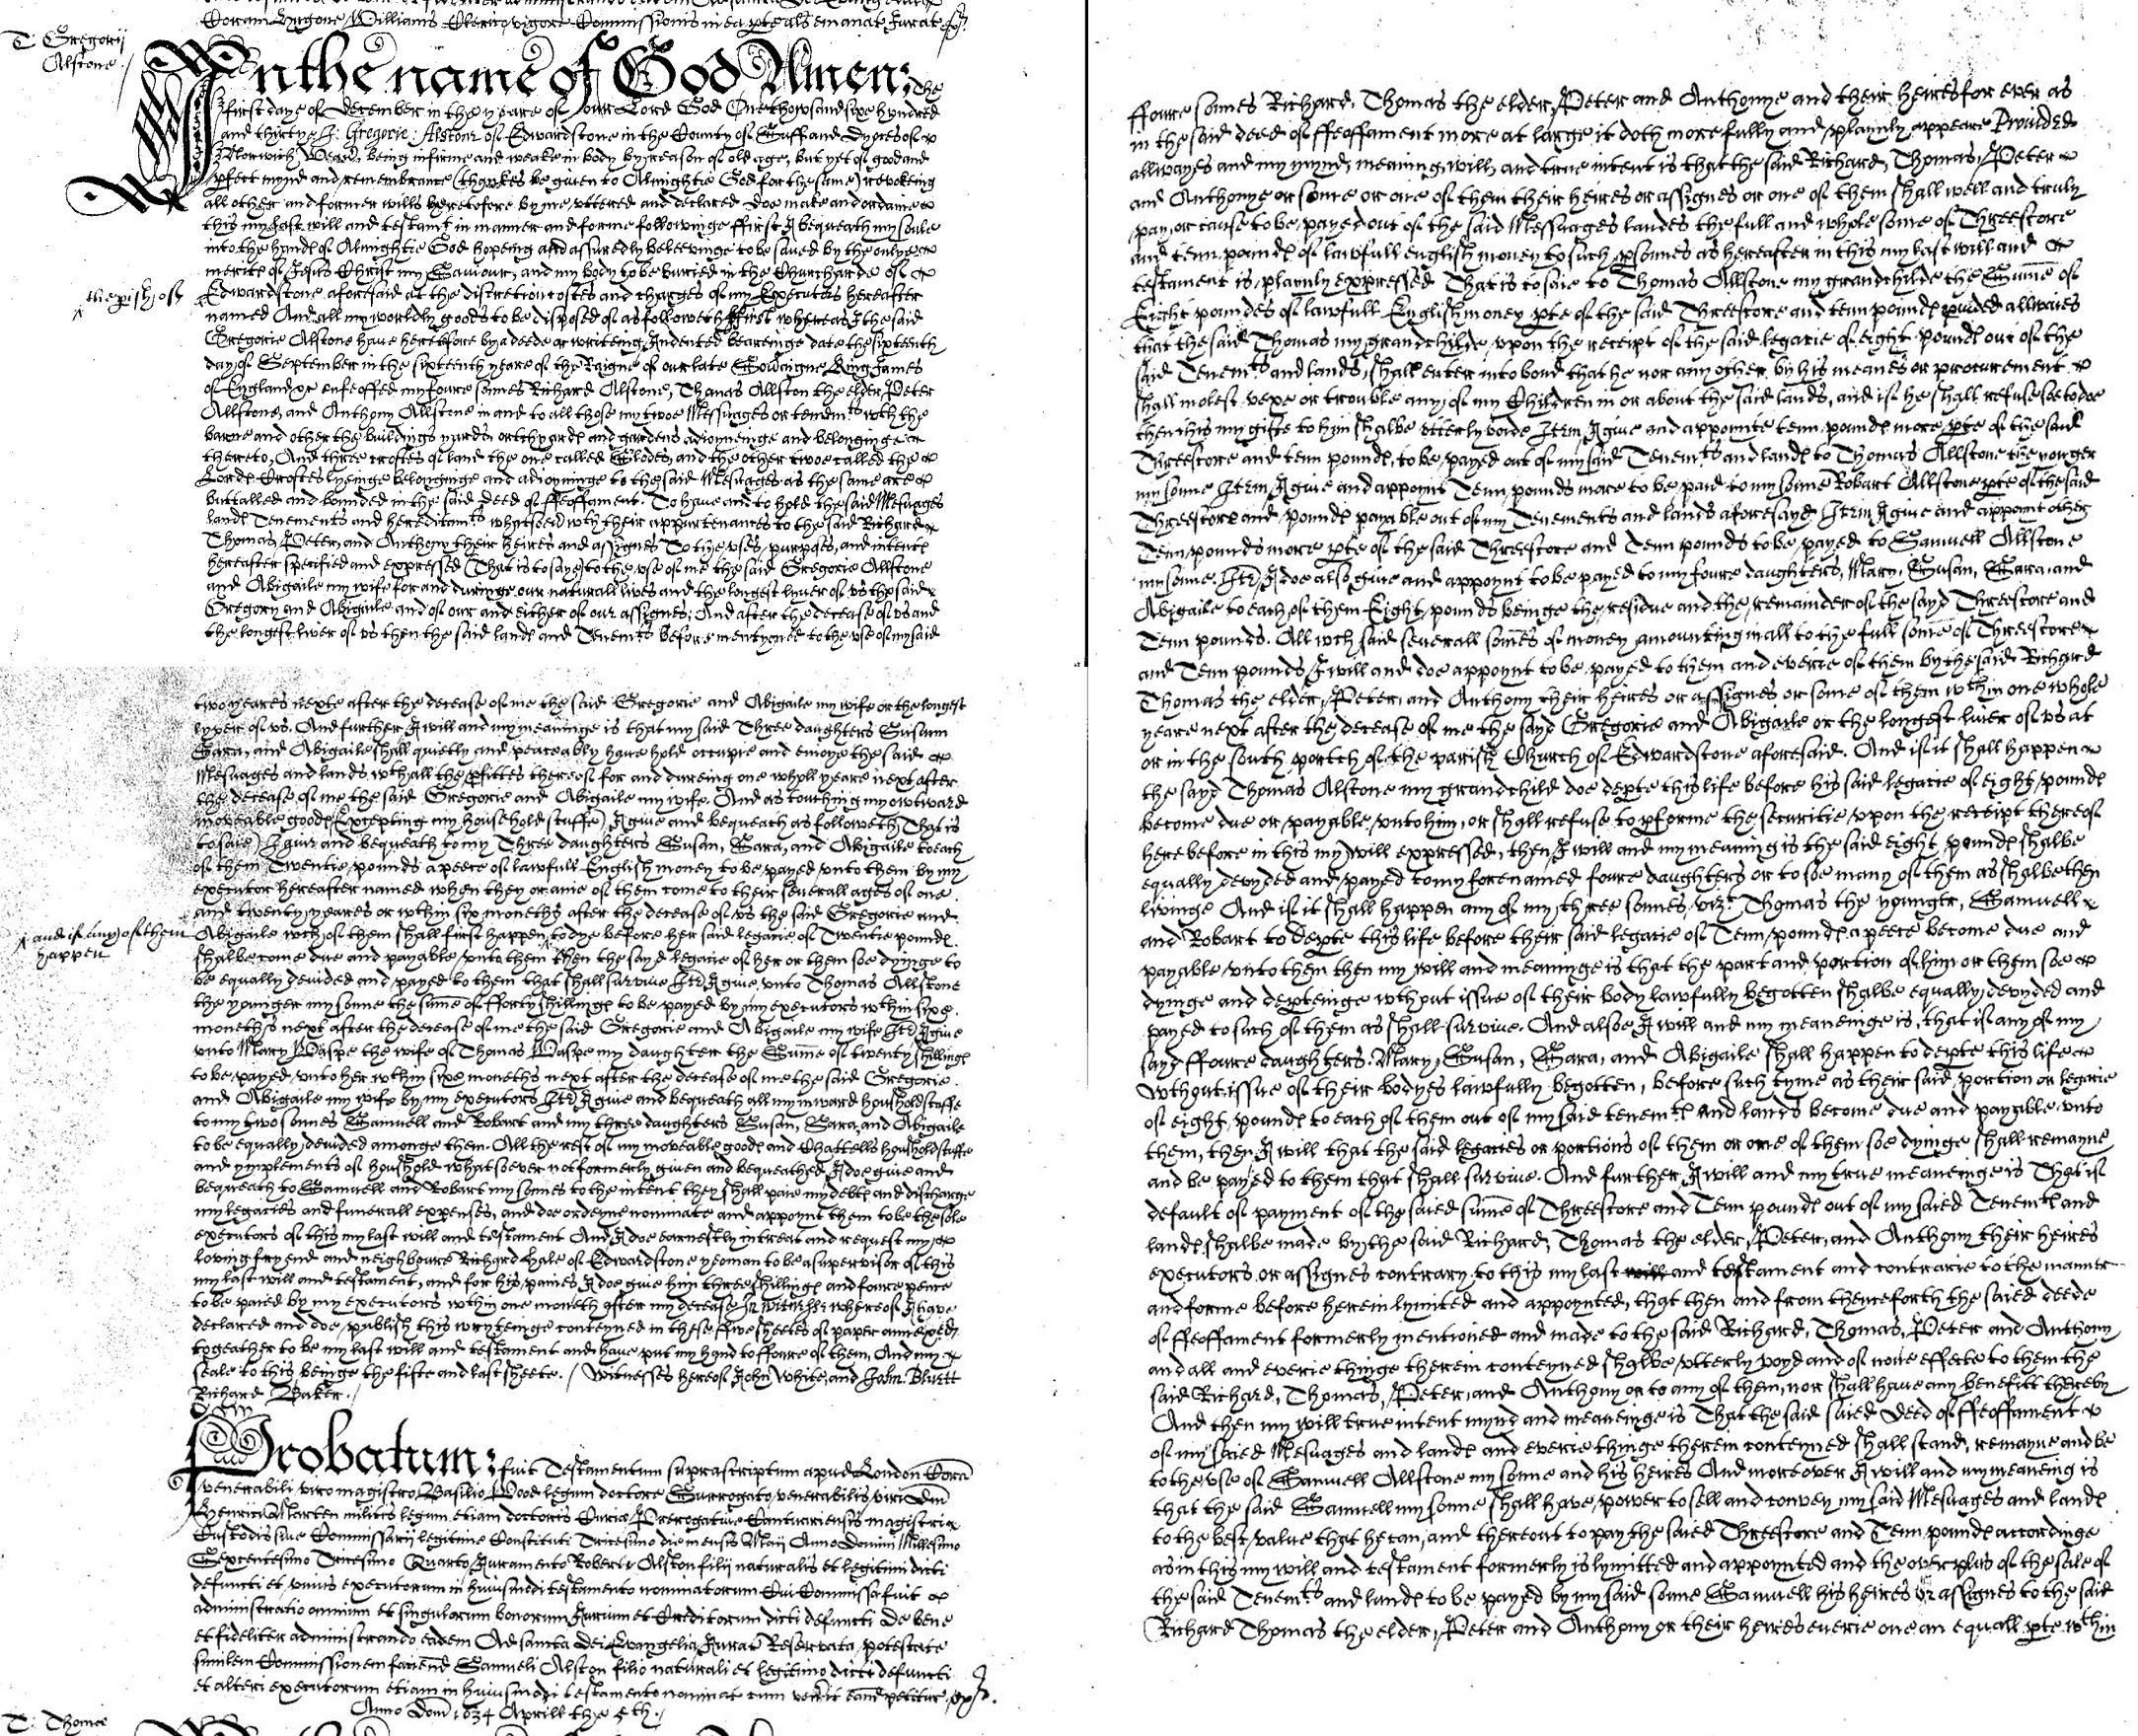 Coram Grigone Williams Clerico vigore Commissionis in ea pte als emanat Jurat
T: Gregorij
Alstone /
In the name of God Amen: The
first daye of December in the yeare of our Lord God One thowsand sixe hundred
and thirtye I: Gregorie: Alston of Edwardstone in the County of Suff and Dyoces of
Norwich being infirme and weake in body by reason of old age, but yet of good and
pfect mynd and remembrance (thankes be given to Almightie God for the same) revokeing
all other and former wills heretofore by me uttered and declared doe make and ordaine
this my last will and testamt in manner and forme followinge ffirst I bequeath my soule
into the handes of Almightie God hopeing and assuredly beleevinge to be saved by the onlye
merites of Jesus Christ my Saviour, and my body to be burried in the Churcharde of
the pish of
Edwardstone aforesaid at the discretion costes and charges of my Executors hereafter
named And all my worldly goods to be disposed of as followeth ffirst whereas I the said
Gregorie Alstone have heretofore by a deede or writeing Indented beareinge date the sixteenth
day of September in the sixteenth yeare of the Raigne of our late Sovraigne King James
of England &c enfeoffed my foure sonnes Richard Alstone, Thomas Allston the elder, Peter
Allstone, and Anthony Allstone in and to all those my twoe Messuages or tenemts wth the
barne and other the buildings yards orchyards and gardens adioyneinge and belonginge
thereto, And three croftes of land the one called Clodes, and the other twoe called the
Lords Croftes lyeinge belonginge and adioyninge to the said Messuages as the same are
buttalled and bounded in the said deed of ffeoffament. To have and to hold the said Messuages
lands Tenements and hereditamts whatsoever wth their appurtenances to the said Richard
Thomas, Peter, and Anthony their heires and assignes To the uses, purposes, and intents
hereafter specified and expressed That is to say, to the use of me the said Gregorie Allstone
and Abigaile my wife for and duringe our naturall lives and the longest liver of us the said
Gregory and Abigaile and of our and either of our assignes; And after the decease of us and
the longest liver of us then the said lands and Tenemts before mentyoned to the use of my said
ffoure sonnes Richard, Thomas the elder, Peter and Anthonye and their heires for ever as
in the said deed of ffeoffament more at large it doth more fully and playnly appeare Provided
allwayes and my mynd, meaning, will, and true intent is that the said Richard, Thomas, Peter
and Anthonye or some or one of them their heires or assignes or one of them shall well and truly
pay or cause to be payed out of the said Messuages landes the full and whole some of Threescore
and tenn pounds of lawfull english money to such psonnes as hereafter in this my last will and
testament is playnly expressed That is to saie to Thomas Allstone my grandchilde the Summe of
Eight poundes of lawfull English money pte of the said Threescore and tenn pounds pvided allwaies
that the said Thomas my grandchilde, upon the receipt of the said legacie of eight pounds out of the
said Tenemts and lands, shall enter into bond that he nor any other by his meanes or procurement
shall molest vexe or trouble any of my Children in or about the said lands, and if he shall refuse soe to doe
then this my gifte to him shalbe utterly voide Item I give and appointe tenn pounds more pte of the said
Threescore and tenn pounds, to be payed out of my said Tenemts and lands to Thomas Allstone the yonger
my sonne Item I give and appoynt Tenn pounds more to be paid to my sonne Robart Allstone pte of the said
Threescore and pounds payable out of my Tenements and lands aforesayd Item I give and appoint other
Tenn pounds more pte of the said Threescore and Tenn pounds to be payed to Samuell Allstone
my sonne. Itm I doe also give and appoynt to be payed to my foure daughters, Mary, Susan, Sara, and
Abigaile to each of them Eight pounds beinge the residue and the remainder of the sayd Threescore and
Tenn pounds. All wch said severall somes of money amounting in all to the full some of Threescore
and Tenn pounds I will and doe appoynt to be payed to them and everie of them by the said Richard
Thomas the elder, Peter, and Anthony their heires or assignes or some of them wthin one whole
yeare next after the decease of me the sayd Gregorie and Abigaile or the longest liver of us at
or in the south portch of the parish Church of Edwardstone aforesaid. And if it shall happen
the sayd Thomas Alstone my grandchild doe depte this life before his said legacie of eight pounds
become due or payable unto him, or shall refuse to pforme the securitie upon the receipt thereof
here before in this my will expressed, then I will and my meaning is the said eight pounds shalbe
equally devyded and payed to my forenamed foure daughters or to soe many of them as shalbe then
livinge And if it shall happen any of my three sonnes, vizt Thomas the younger, Samuell
and Robart to depte this life before their said legacie of Tenn pounds a peece become due and
payable unto them then my will and meaninge is that the part and portion of him or them soe
dyinge and depteinge wthout issue of their body lawfully begotten shalbe equally devyded and
payed to such of them as shall survive. And alsoe I will and my meaneinge is, that if any of my
sayd ffoure daughters, Mary, Susan, Sara, and Abigaile shall happen to depte this life
wthout issue of their bodyes lawfully begotten, before such tyme as their said portion or legacie
of eight pounds to each of them out of my said tenemts and lands become due and payable unto
them, then I will that the said legacies or portions of them or one of them soe dyinge shall remayne
and be payed to them that shall survive. And further I will and my true meaneinge is That if
default of payment of the saied summe of Threescore and Tenn pounds out of my saied Tenemts and
lands shalbe made by the said Richard, Thomas the elder, Peter, and Anthony their heires
executors or assignes contrary to this my last will and testament and contrarie to the manner
and forme before herein lymited and appoynted, that then and from thenceforth the saied deede
of ffeoffament formerly mentioned and made to the said Richard, Thomas, Peter and Anthony
and all and everie thinge therein conteyned shalbe utterly voyd and of none effecte to them the
said Richard, Thomas, Peter, and Anthony or to any of them, nor shall have any benefitt thereby
And then my will true intent mynd and meaneinge is That the said saied deed of ffeoffament
of my saied Messuages and lands and everie thinge therein conteyned shall stand, remayne and be
to the use of Samuell Allstone my sonne and his heires And moreover I will and my meaneing is
that the said Samuell my sonne shall have power to sell and convey my said Messuages and lands
to the best value that he can, and thereout to pay the saied Threescore and Tenn pounds accordinge
as in this my will and testament formerly is lymitted and appoynted and the overplus of the sale of
the said Tenemts and lands to be payed by my said sonne Samuell his heires or assignes to the said
Richard Thomas the elder, Peter and Anthony or their heires everie one an equall pte wthin
two yeares nexte after the decease of me the said Gregorie and Abigaile my wife or the longest
lyver of us. And further I will and my meaninge is that my said Three daughters Susann
Sara, and Abigaile shall quietly and peaceably have hold occupie and enioye the said
Messuages and lands wth all the pfittes thereof for and dureing one whole yeare next after
the decease of me the said Gregorie and Abigaile my wife. And as touching my owtward
moveable goods (Excepting my household stuffe) I give and bequeath as followeth That is
to saie) I give and bequeath to my Three daughters Susan, Sara, and Abigaile to each
of them Twentie pounds a peece of lawfull English money to be payed unto them by my
executor hereafter named when they or anie of them come to their severall ages of one
and twenty yeares or wthin six moneths after the decease of us the said Gregorie and
⁁ and if any of them
happen
Abigaile wch of them shall first happen ⁁ to dye before her said legacie of Twentie pounds
shalbecome due and payable unto them then the sayd legacie of her or them soe dyinge to
be equally devided and payed to them that shall survive Itm I give unto Thomas Allstone
the younger my sonne the some of fforty shillings to be payed by my executors wthin sixe
moneths next after the decease of me the said Gregorie and Abigaile my wife Itm I give
unto Mary Waspe the wife of Thomas Waspe my daughter the Summe of twenty shillings
to be payed unto her wthin sixe moneths next after the decease of me the said Gregorie
and Abigaile my wife by my executors Itm I give and bequeath all my inward houshold stuffe
to my two sonnes Samuell and Robart and my three daughters Susan, Sara, and Abigaile
to be equally devided amonge them. All the rest of my moveable goods and Chattells houshold stuffe
and ymplements of houshold whatsoever not formerly given and bequeathed I doe give and
bequeath to Samuell and Robart my sonnes to the intent they shall paie my debts and discharge
my legacies and funerall expenses, and doe ordeyne nominate and appoynt them to be the sole
executors of this my last will and testament And I doe earnestly intreat and request my
loving frynd and neighboure Richard Hale of Edwardstone yeoman to be a supervisor of this
my last will and testament, and for his paines I doe give him three shillings and foure pence
to be paied by my executors wthin one moneth after my decease In witness whereof I have
declared and doe publish this wryteinge conteyned in these ffive sheetes of paper annexed
togeather to be my last will and testament and have put my hand to ffoure of them, And my
seale to this beinge the fifte and last sheete. / Witnesses hereof John White, and John Blurtt
Richard Baker. /
Probatum: fuit Testamentum suprascriptum apud London Cora
venerabili viro magistro Basilio Wood legum doctore Surrogato venerabilis viri Dm
Henrici Marten militis legum etiam doctoris Curie Prerogative Cantuariensis magistri
Custodis sive Commissarij legitime Constituti Tricesimo die mensis Maij Anno Domini Millesimo
Sexcentesimo Tricesimo Quarto Juramento Roberti Alston filij naturalis et legitimi dicti
defuncti et unius executorum in huiusmodi testamento nominatorum Cui Commissa fuit
administratio omnium et singulorum bonorum Jurium et Creditorum dicti defuncti De bene
et fideliter administrando eadem Ad sancta Dei Evangelia Jurat Reservata potestate
similem Commissionem faciend Samueli Alston filio naturali et legitimo dicti defuncti
et alteri executorum etiam in huiusmodi testamento nominat cum venerit eand petitur
Anno Dom 1634 Aprill the 5th /
T: Thome